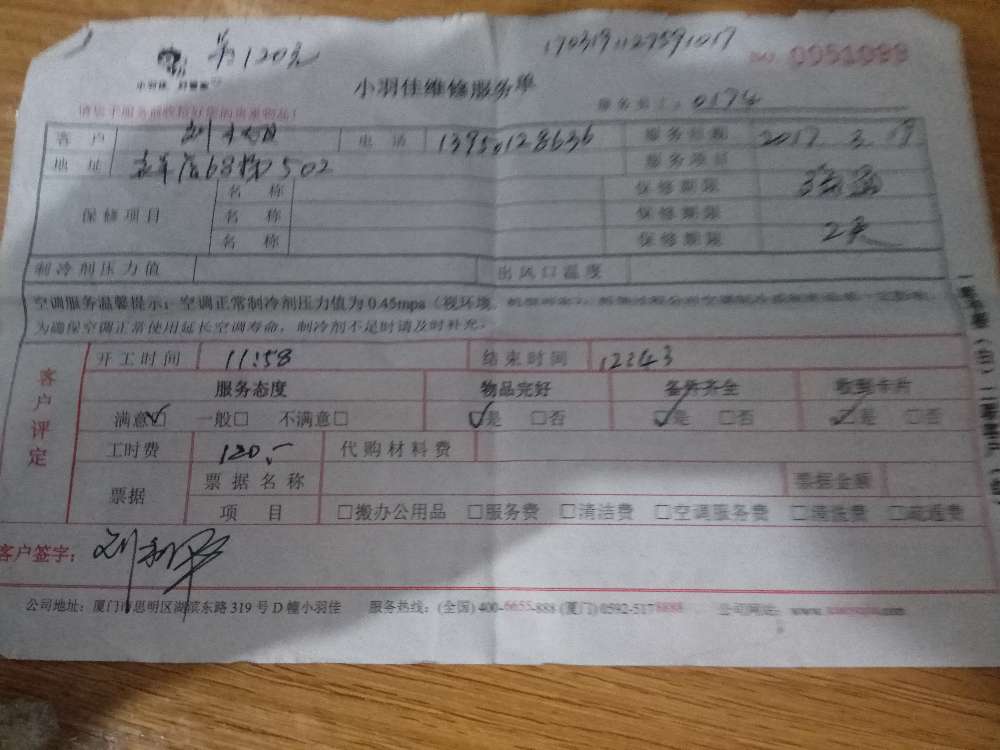 120元
1703191127591017
小羽佳 好管家
NO. 0051099
小羽佳维修服务单
请您于服务前收拾好您的贵重物品!
服务员工: 0174
客户 刘 电话 13950128636 服务日期 2017 3 19
地址 68栋502 服务项目
保修项目 名称 保修期限
名称 保修期限
名称 保修期限 2天
制冷剂压力值 出风口温度
空调服务温馨提示:空调正常制冷剂压力值为0.45mpa(视环境
为确保空调正常使用延长空调寿命,制冷剂不足时请及时补充。
客户评定
开工时间 11:58 结束时间 12:43
服务态度 物品完好 备件齐全 收到卡片
满意☑ 一般□ 不满意□ ☑是 □否 ☑是 □否 ☑是 □否
工时费 120.- 代购材料费
票据 票据名称 票据金额
项目 □搬办公用品 □服务费 □清洁费 □空调服务费 □清洗费 □疏通费
客户签字: 刘
公司地址:厦门市思明区湖滨东路319号D幢小羽佳 服务热线:(全国)400-6655-888 (厦门)0592-5178888 公司网址:www.